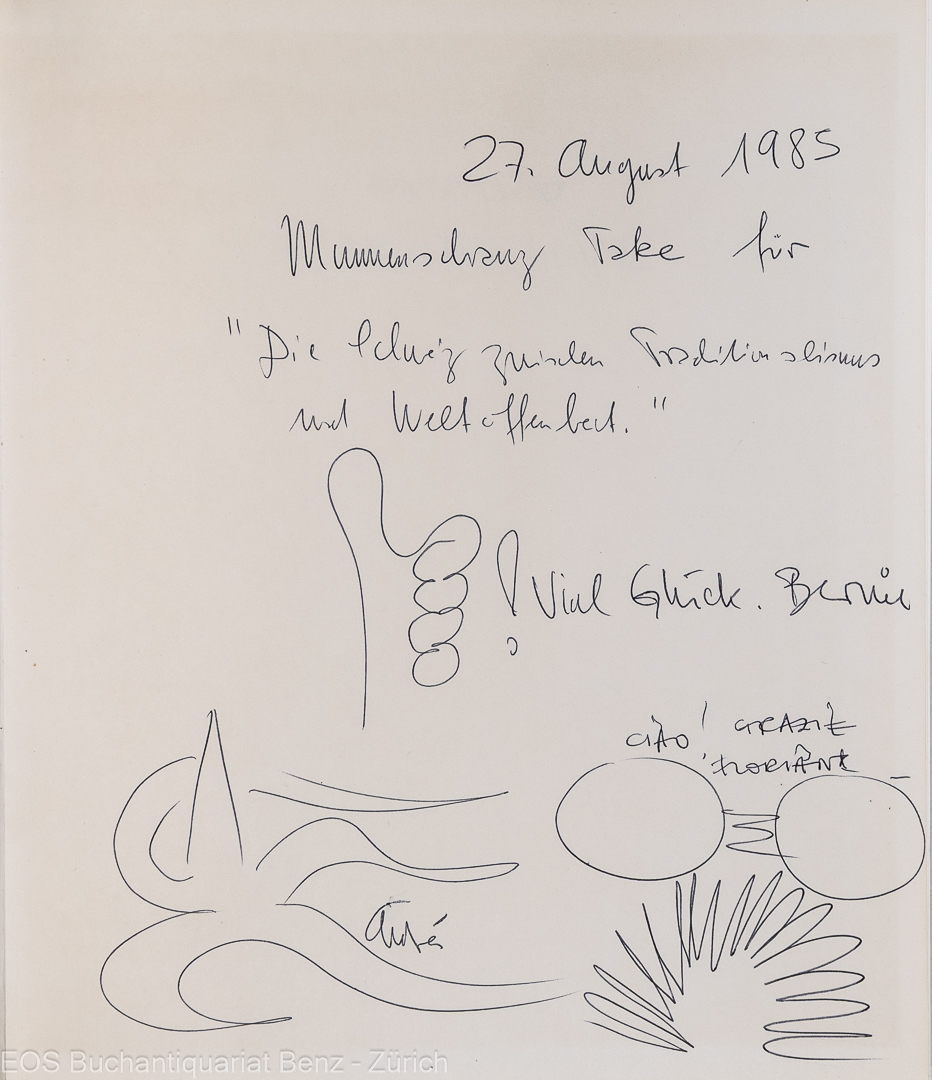 27. August 1985
Mummenschanz Take für
"Die Schweiz zwischen Traditionalismus
und Weltoffenheit."
! Viel Glück. Bernie
CIAO! GRAZIE
FLORIANA
André
EOS Buchantiquariat Benz - Zürich